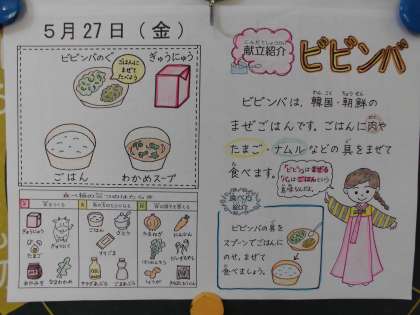 5月27日（金）
ビビンバのぐ
ぎゅうにゅう
ごはんに
まぜて
たべよう
ごはん
わかめスープ
ぎゅうにゅう
たまご
ごはん
さとう
たまねぎ
にんじん
しょうが
献立紹介
ビビンバ
ビビンバは、韓国・朝鮮の
まぜごはんです。ごはんに肉や
たまご・ナムルなどの具をまぜて
食べます。
「ビビン」はまぜる
「バ」はごはんという
意味なんだよ。
食べ方
紹介
ビビンバの具を
スプーンでごはんに
のせ、まぜて
食べましょう。